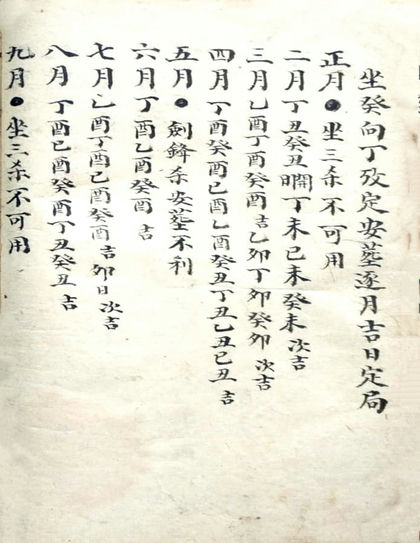 坐癸向丁攷定安葬逐月吉日定局
正月●坐三杀不可用
二月丁丑癸丑開丁未己未癸未次吉
三月乙酉丁酉癸酉吉乙卯丁卯癸卯次吉
四月丁酉癸酉己酉乙酉癸丑丁丑乙丑己丑吉
五月●劍鋒杀安葬不利
六月丁酉乙酉癸酉吉
七月乙酉丁酉己酉癸酉吉卯日次吉
八月丁酉己酉癸酉丁丑癸丑吉
九月●坐三杀不可用